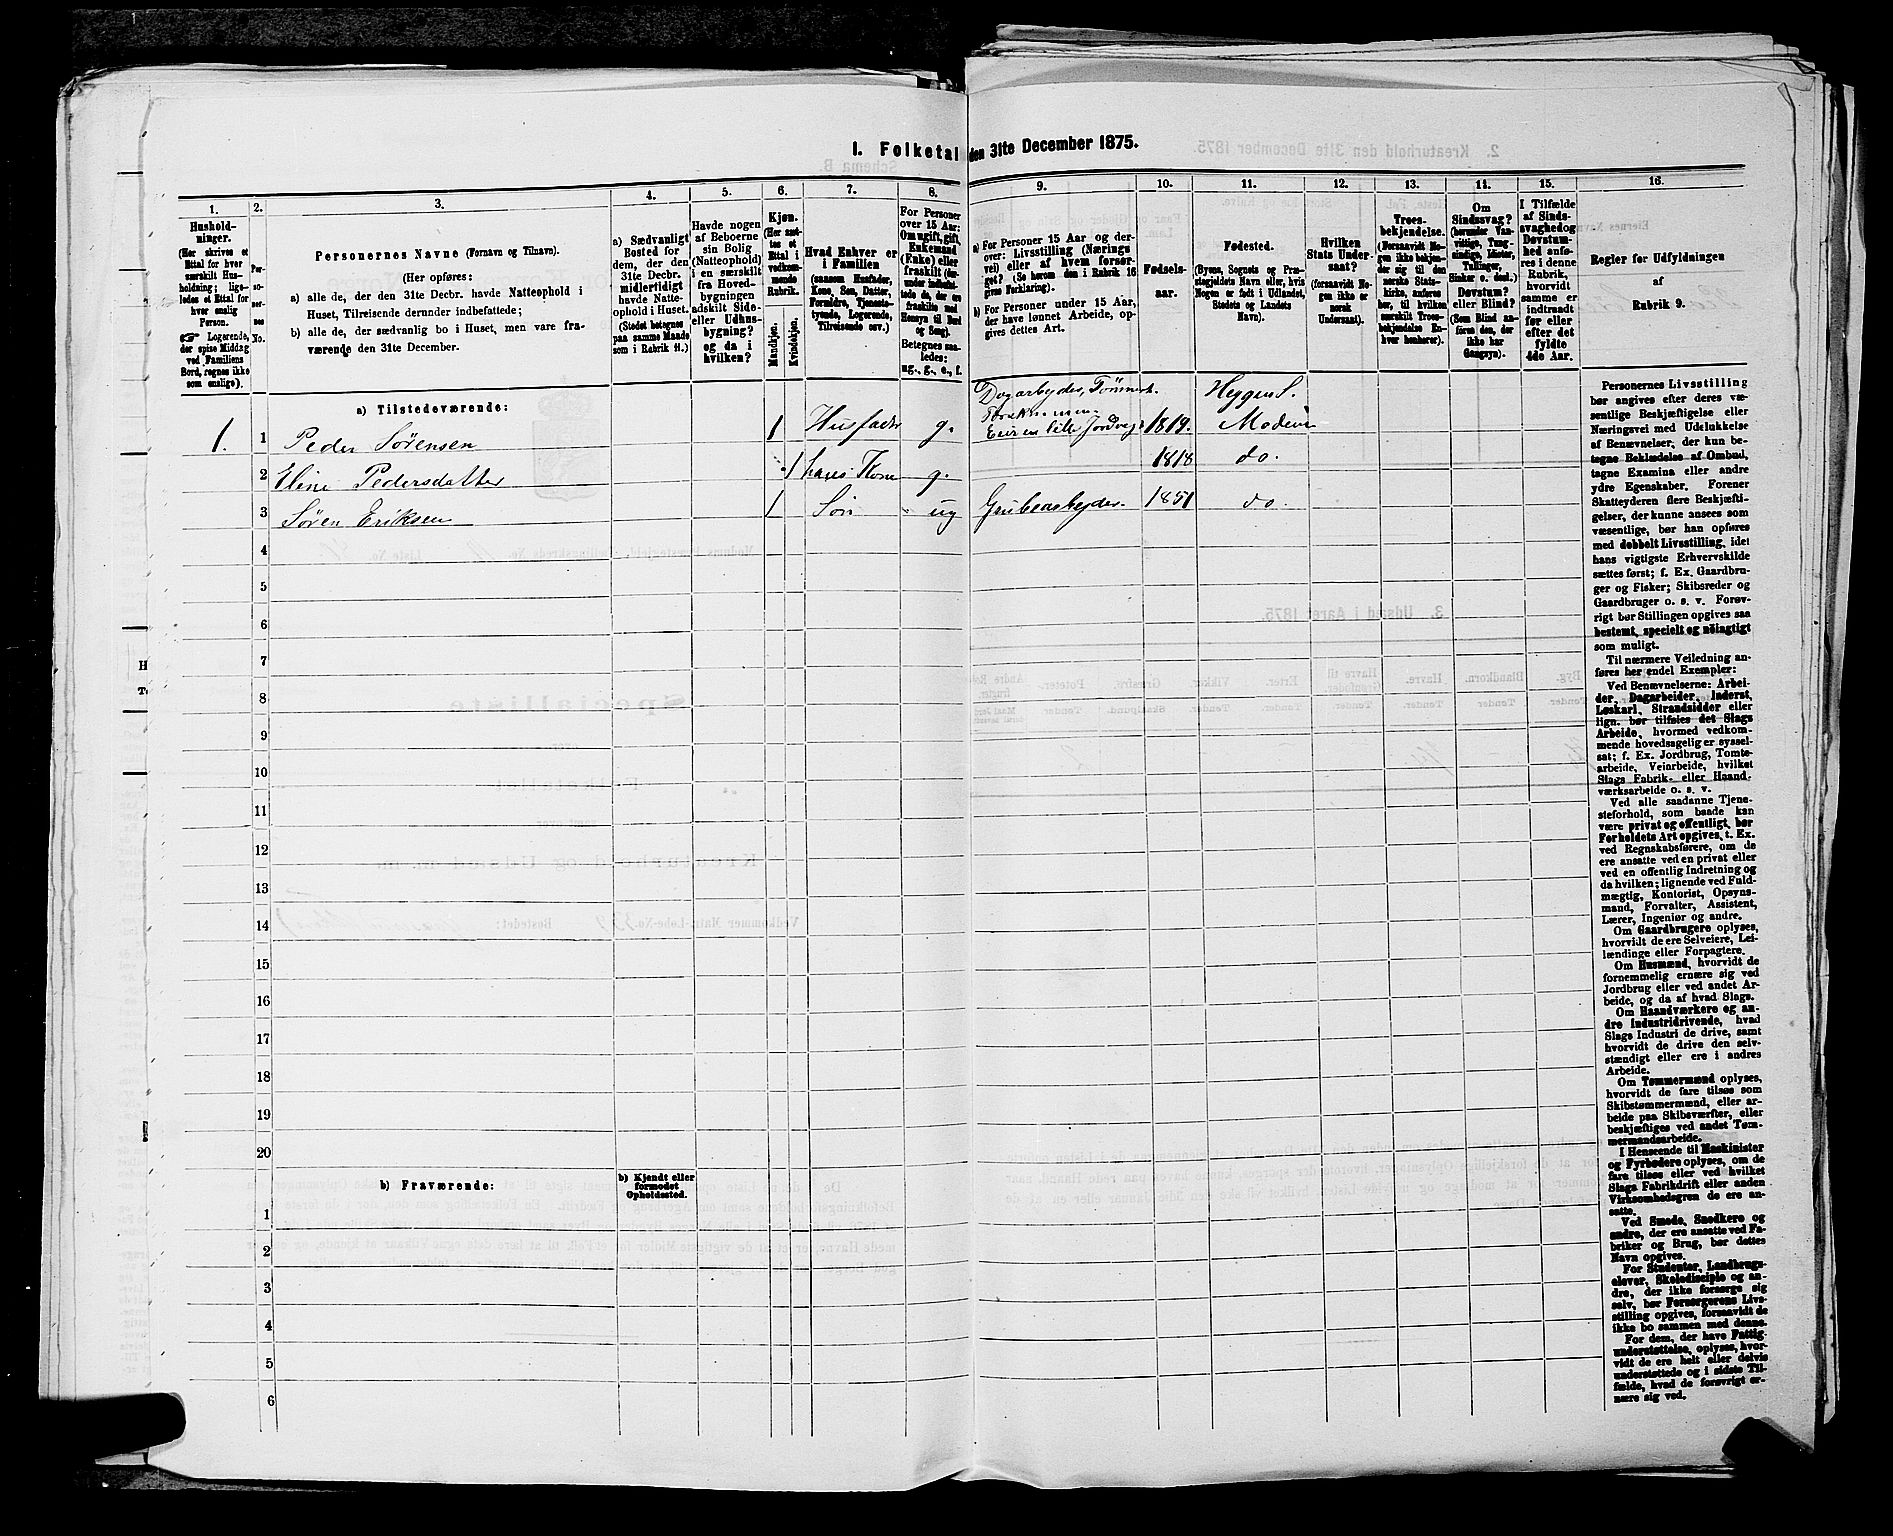 I. Folketal den 31te December 1875.
1.
2.
3.
4.
5.
6.
7.
8.
9.
10.
11.
12.
13.
14.
15.
16.
Hushold-
ninger.
(Her skrives et
Ettal for hver
særskilt Hus-
holdning; lige-
ledes et Ettal for
hver enslig
Person.
Logerende,
der spise Middag
ved Familiens
Bord, regnes ikke
som enslige).
Per-
so-
ner-
nes
No.
Personernes Navne (Fornavn og Tilnavn).
(Her opføres:
a) alle de, der den 31te Decbr. havde Natteophold i
Huset, Tilreisende derunder indbefattede;
b) alle de, der sædvanlig bo i Huset, men vare fra-
værende den 31te December.
a) Sædvanligt
Bosted for
dem, der den
31te Decbr.
midlertidigt
havde Natte-
ophold i Huset.
(Stedet betegnes
paa samme Maade
som i Rubrik 11.)
Havde nogen
af Beboerne
sin Bolig
(Natteophold)
i en særskilt
fra Hoved-
bygningen
adskilt Side-
eller Udhus-
bygning?
og da i
hvilken?
Kjøn.
(Her sæt-
tes et
Ettal i
vedkom-
mende
Rubrik.
Mandkjøn.
Kvindekjøn.
Hvad Enhver er
i Familien
(saasom Husfader,
Kone, Søn, Datter,
Forældre, Tjeneste-
tyende, Logerende,
Tilreisende osv.)
For Personer
over 15 Aar:
Om ugift, gift,
Enkemand
(Enke) eller
fraskilt (der-
under indbefat-
tede de, der ere
fraskilte med
Hensyn til Bord
og Seng).
Betegnes saa-
ledes:
ug., g., e., f.
a) For Personer 15 Aar og der-
over: Livsstilling (Nærings-
vei) eller af hvem forsør-
get? (Se herom den i Rubrik 16
givne Forklaring).
b) For Personer under 15 Aar,
der have lønnet Arbeide, op-
gives dettes Art.
Fødsels-
aar.
Fødested.
(Byens, Sognets og Præ-
stegjeldets Navn eller, hvis
Nogen er født i Udlandet,
Stedets og Landets
Navn).
Hvilken
Stats Under-
saat?
(forsaavidt No-
gen ikke er
norsk
Undersaat).
Troes-
bekjendelse.
(Forsaavidt No-
gen ikke bekjen-
der sig til den
norske Stats-
kirke, anføres
her, til hvilken
særskilt Troes-
bekjendelse En-
hver henhører).
Om
Sindssvag?
(herunder Van-
vittige, Tung-
sindige, Idioter,
Tullinger,
Hinker o. desl.)
Døvstum?
eller Blind?
(Som Blind an-
føres den, der
ikke har
Gangsyn).
I Tilfælde
af Sinds-
svaghed og
Døvstum-
hed anfø-
res i denne
Rubrik,
hvorvidt
samme er
indtraadt
før eller
efter det
fyldte
4de Aar.
Regler for Udfyldningen
af
Rubrik 9.
a) Tilstedeværende:
1. 1 Peder Sørensen 1 Husfader g. Dagarbeyder, 1819. Heggen S. Modum
2 Eline Pedersdatter 1 hans Kone g. 1818 do.
3 Søren Eriksen 1 Søn ug Grubearbeyder. 1851 do.
4
5
6
7
8
9
10
11
12
13
14
15
16
17
18
19
20
b) Fraværende:
b) Kjendt eller
formodet
Opholdssted.
1
2
3
4
5
6
Personernes Livsstilling
bør angives efter deres væ-
sentlige Beskjæftigelse eller
Næringsvei med Udelukkelse
af Benævnelser, der kun be-
tegne Beklædelse af Ombud,
tagne Examina eller andre
ydre Egenskaber. Forener
Skatteyderen flere Beskjæfti-
gelser, der kunne ansees som
væsentlige, bør han opføres
med dobbelt Livsstilling, idet
hans vigtigste Erhvervskilde
sættes først; f. Ex. Gaardbru-
ger og Fisker; Skibsreder og
Gaardbruger o. s. v. Forøv-
rigt bør Stillingen opgives saa
bestemt, specielt og nøiagtigt
som muligt.
Til nærmere Veiledning an-
føres her endel Exempler:
Ved Benævnelserne: Arbei-
der, Dagarbeider, Inderst,
Løskarl, Strandsidder eller
lign. bør tilføies det Slags
Arbeide, hvormed vedkom-
mende hovedsagelig er syssel-
sat; f. Ex. Jordbrug, Tomte-
arbeide, Veiarbeide, hvilket
Slags Fabrik- eller Haand-
værksarbeide o. s. v.
Ved alle saadanne Tjene-
steforhold, som baade kan
være privat og offentligt, bør
Forholdets Art opgives, t. Ex.
ved Regnskabsførere, om de
ere ansatte ved en privat eller
ved en offentlig Indretning og
da hvilken; lignende ved Fuld-
mægtig, Kontorist, Opsyns-
mand, Forvalter, Assistent,
Lærer, Ingeniør og andre.
Om Gaardbrugere oplyses,
hvorvidt de ere Selveiere, Lei-
lændinge eller Forpagtere.
Om Husmænd, hvorvidt de
fornemmelig ernære sig ved
Jordbrug eller ved andet Ar-
beide, og da af hvad Slags.
Om Haandværkere og an-
dre Industridrivende, hvad
Slags Industri de drive, samt
hvorvidt de drive den selv-
stændigt eller ere i andres
Arbeide.
Om Tømmermænd oplyses,
hvorvidt de fare tilsøs som
Skibstømmermænd, eller ar-
beide paa Skibsværfter, eller
beskjæftiges ved andet Tøm-
mermandsarbeide.
I Henseende til Maskinister
og Fyrbødere oplyses, om de
fare tilsøs eller ved hvilket
Slags Fabrikdrift eller anden
Virksomhedsgren de ere an-
satte.
Ved Smede, Snedkere og
andre, der ere ansatte ved Fa-
briker og Brug, bør dettes
Navn opgives.
For Studenter, Landbrugs-
elever, Skoledisciple og an-
dre, der ikke forsørge sig
selv, bør Forsørgerens Livs-
stilling opgives, forsaavidt de
ikke bo sammen med denne.
For dem, der have Fattig-
understøttelse, oplyses, hvor-
vidt de ere helt eller delvis
understøttede og i sidste Til-
fælde, hvad de forøvrigt er-
nære sig ved.